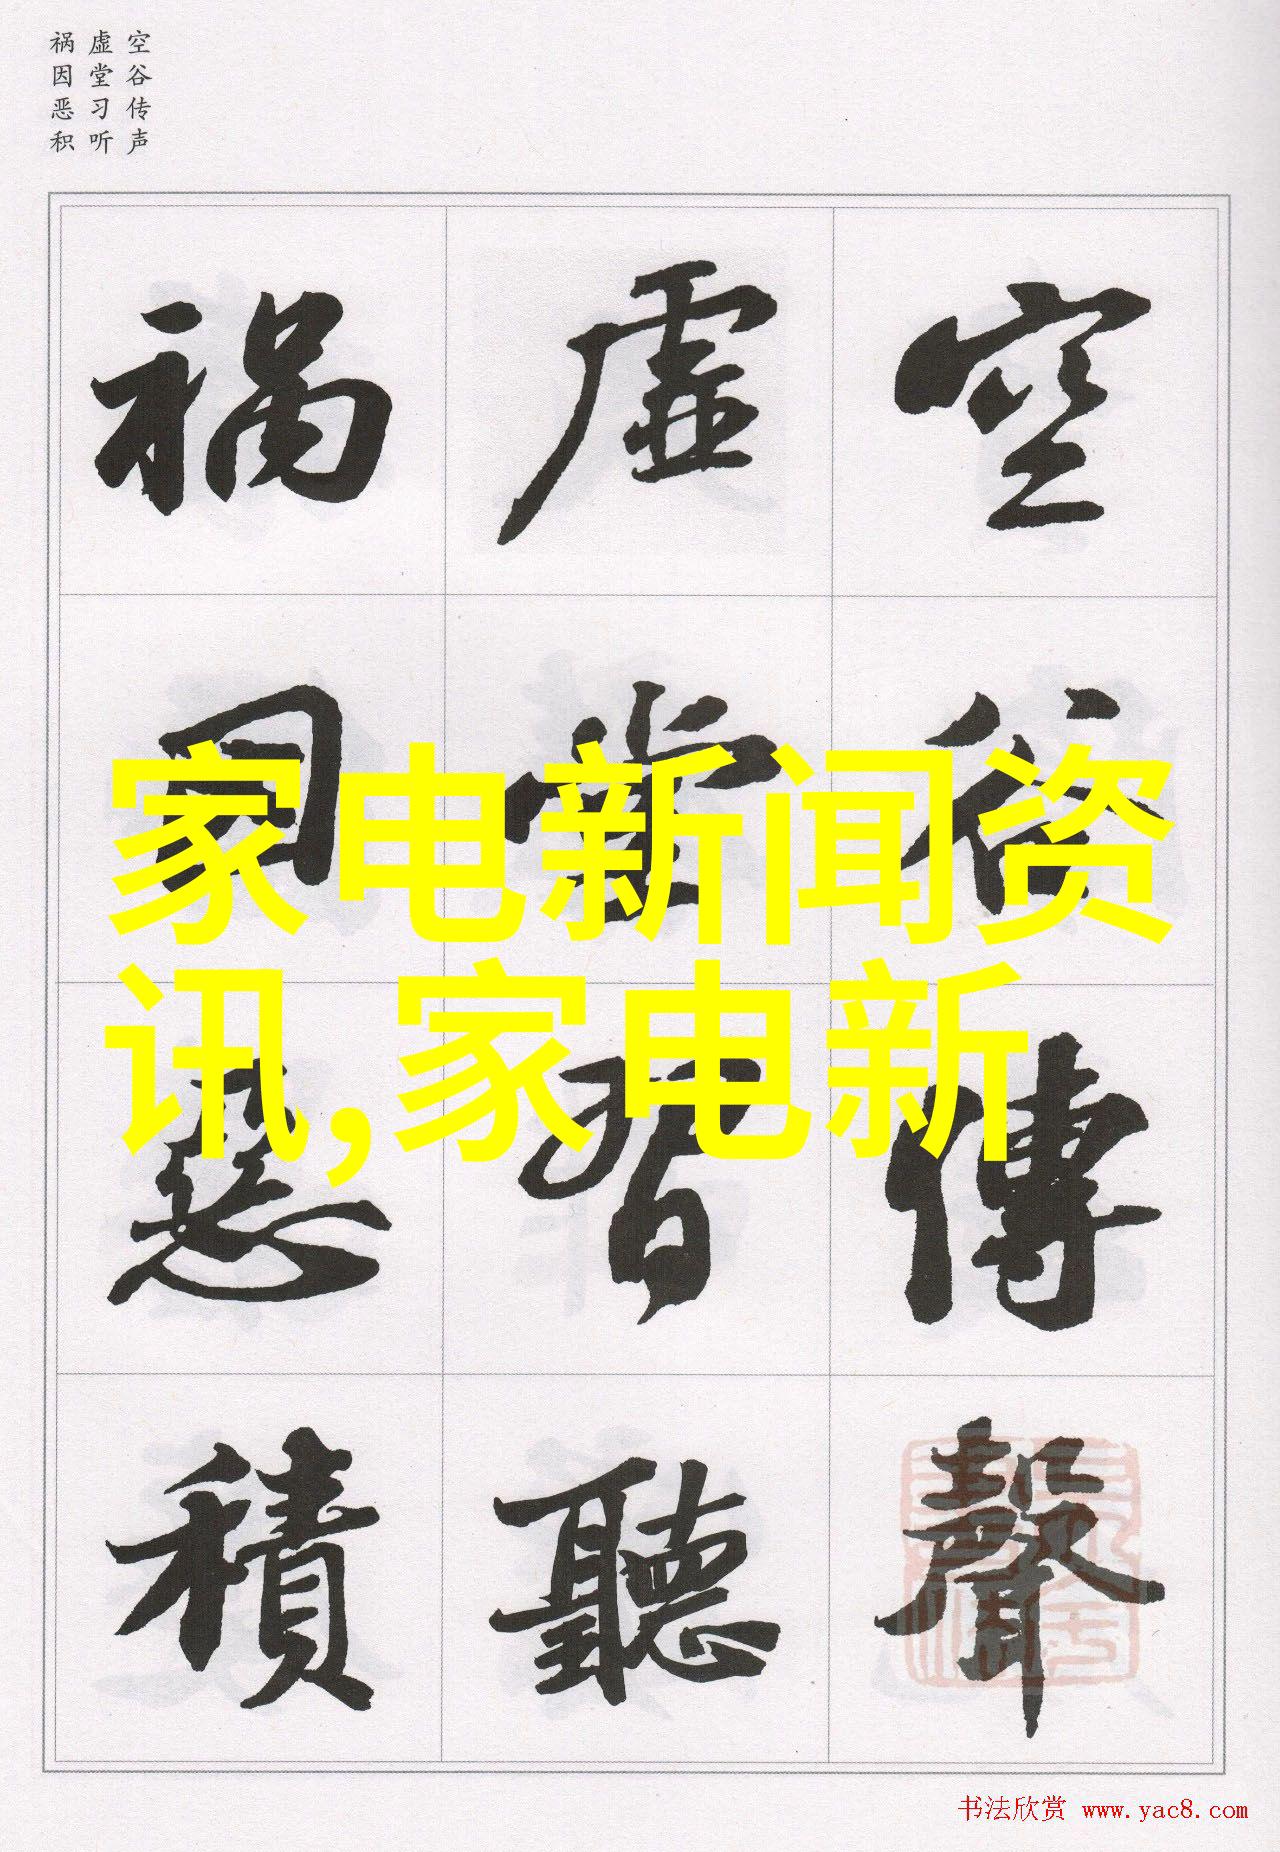 空谷传声
虚堂习听
祸因恶积
空谷傳聲
虛堂習聽
禍因惡積
家电新闻资
讯,家电新
书法欣赏 www.yac8.com